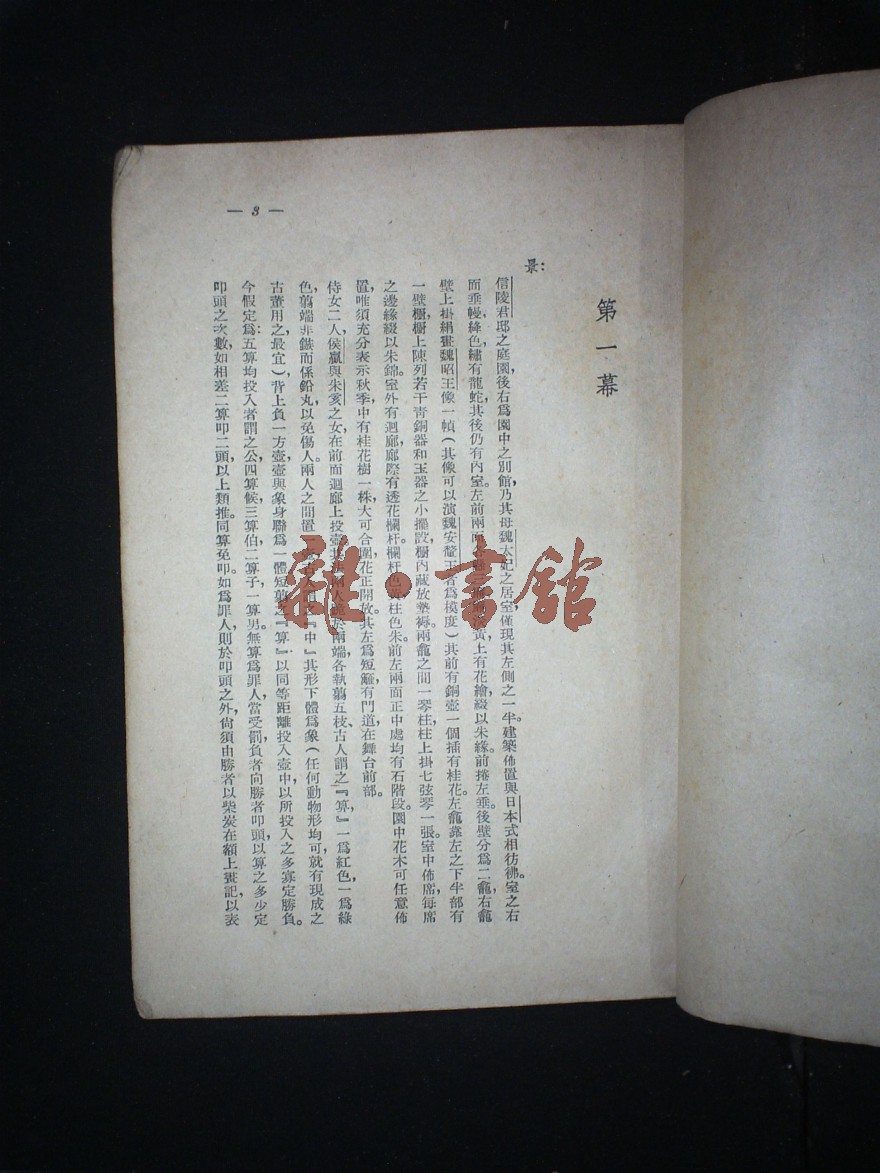 第一幕
景:
信陵君邸之庭園,後右爲園中之別館,乃其母魏太妃之居室,僅現其左側之一半。建築佈置與日本式相彷彿。室之右
而垂幔,絳色,繡有龍蛇,其後仍有內室。左前兩面 黃,上有花繪,綴以朱緣。前捲左垂。後壁分爲二龕,右龕
壁上掛絹畫魏昭王像一幀(其像可以演魏安釐王者爲模度)其前有銅壺一個,插有桂花。左龕靠左之下半部有
一壁櫥,櫥上陳列若干青銅器和玉器之小擺設,櫥內藏放墊褥。兩龕之間一琴柱,柱上掛七弦琴一張。室中佈席,每席
之邊緣綴以朱錦。室外有迴廊,廊際有透花欄杆,欄杆色 柱色朱。前左兩面正中處均有石階段。園中花木可任意佈
置,唯須充分表示秋季,中有桂花樹一株,大可合圍,花正開放。其左爲短籬,有門道在舞台前部。
侍女二人,侯嬴與朱亥之女,在前面迴廊上投壺。 跪於兩端,各執蒭五枝、古人謂之『算』,一爲紅色,一爲綠
色,蒭端非鏃而係鉛丸,以免傷人。兩人之間置一 『中』其形下體爲象(任何動物形均可,就有現成之
古董用之最宜)背上負一方壺,壺與象身聯爲一體。短蒭之『算』以同等距離投入壺中,以所投入之多寡定勝負。
今假定爲:五算均投入者謂之公,四算侯,三算伯,二算子,一算男。無算爲罪人,當受罰。負者向勝者叩頭,以算之多少定
叩頭之次數,如相差二算叩二頭,以上類推。同算免叩。如爲罪人,則於叩頭之外,尙須由勝者以柴炭在額上 記,以表
— 3 —
雜·書館